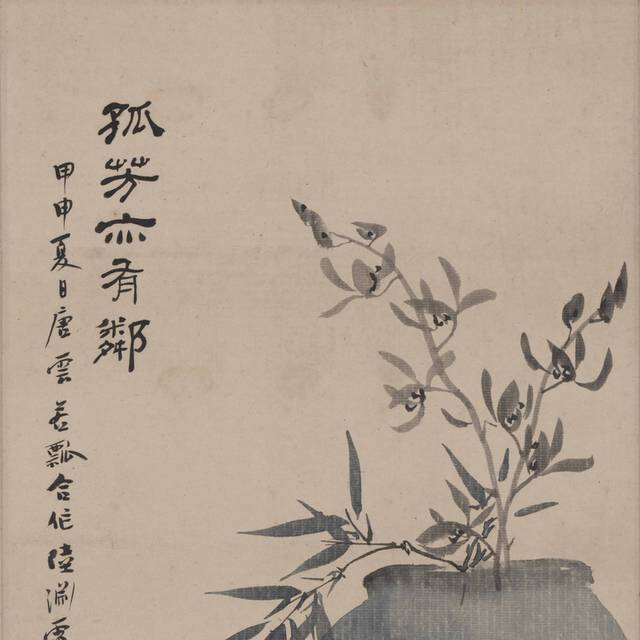 孤芳亦有鄰
甲申夏日唐雲若瓢合作陸淵雷